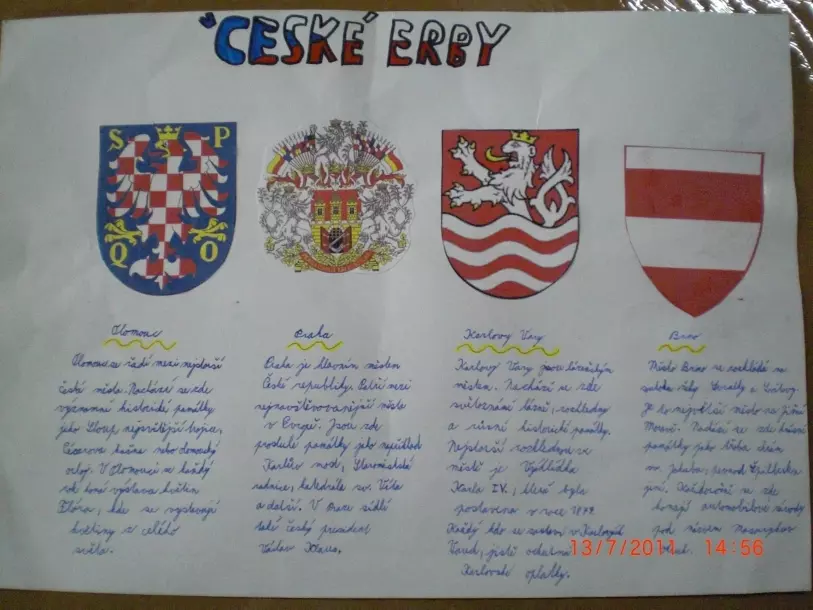 ČESKÉ ERBY
S P
Q O
Olomouc
Olomouc se řadí mezi nejstarší
česká města. Nachází se zde
významné historické památky
jako Sloup nejsvětější trojice,
Césarova kašna nebo olomoucký
orloj. V Olomouci se každý
rok koná výstava květin
Flóra, kde se vystavují
květiny z celého
světa.
Praha
Praha je hlavním městem
České republiky. Patří mezi
nejnavštěvovanější města
v Evropě. Jsou zde
proslulé památky jako například
Karlův most, Staroměstská
radnice, katedrála sv. Víta
a další. V Praze sídlí
také český president
Václav Klaus.
Karlovy Vary
Karlovy Vary jsou lázeňským
městem. Nachází se zde
světoznámé lázně, rozhledny
a různé historické památky.
Nejstarší rozhlednou ve
městě je Vyhlídka
Karla IV., která byla
postavena v roce
Každý kdo se zastaví v Karlových
Varech, jistě ochutná
Karlovské oplatky.
Brno
Město Brno se rozkládá na
soutoku řeky Svratky a Svitavy.
Je to největší město na jižní
Moravě. Nachází se zde krásné
památky jako třeba chrám
sv. Jakuba, Špilberk a
jiné. Každoročně se zde
konají automobilové závody
pod názvem
13/7/2011 14:56